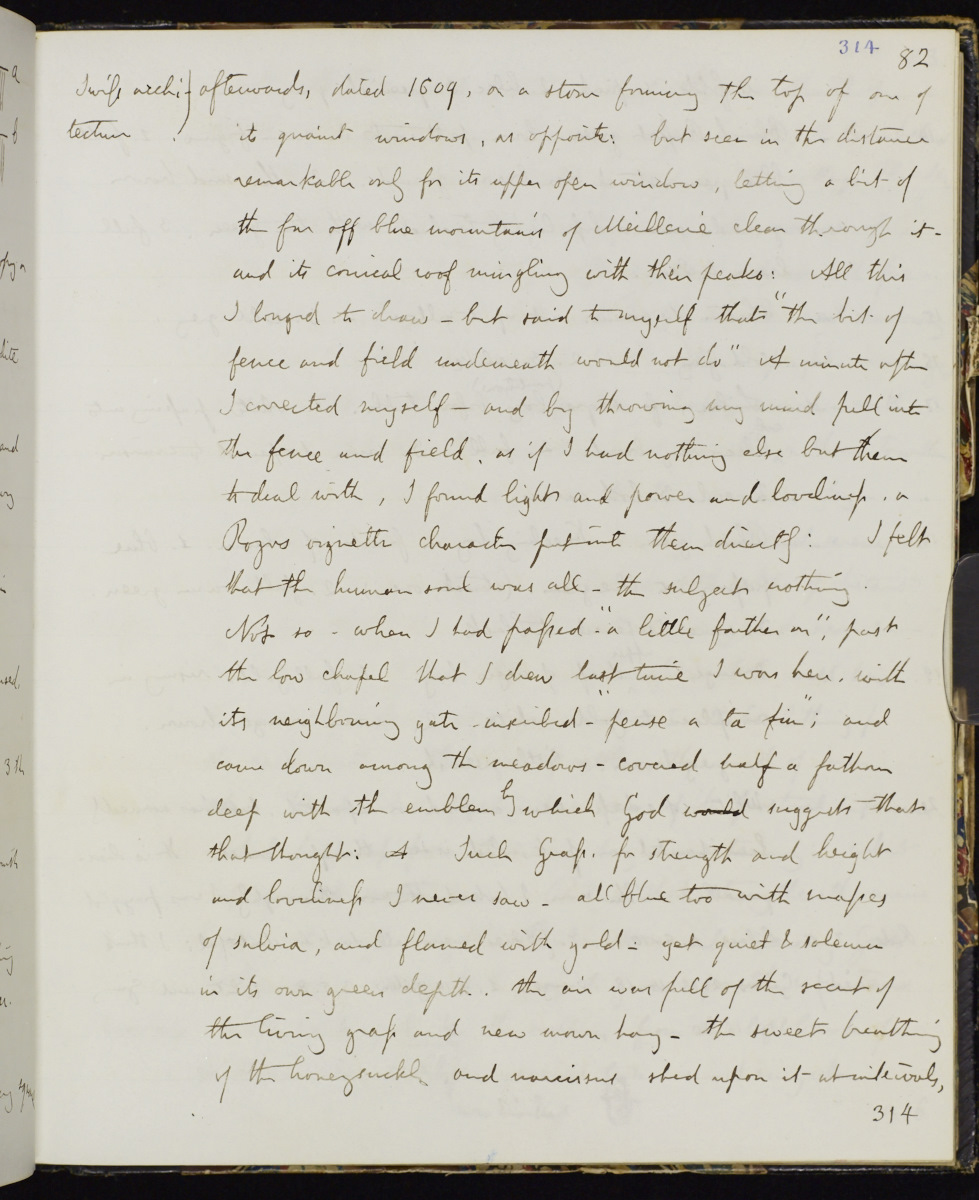 314 82
Swiss archi- afterwards, dated 1609, on a stone forming the top of one of
tecture its quaint windows, as opposite: but seen in the distance
remarkable only for its upper open window, letting a bit of
the far off blue mountains of Meillerie clear through it -
and its conical roof mingling with their peaks: All this
I longed to draw - but said to myself that "the bit of
fence and field underneath would not do" A minute after
I corrected myself - and by throwing my mind full into
the fence and field, as if I had nothing else but them
to deal with, I found light and power and loveliness, a
Rogers vignette character put into them directly: I felt
that the human soul was all - the subject nothing.
Not so - when I had passed - "a little farther on", past
the low chapel that I drew last time I was here, with
its neighbouring gate - inscribed - "pense a ta fin"; and
came down among the meadows - covered half a fathom
deep with the emblem by which God would suggests that
that thought: A Such Grass, for strength and height
and loveliness I never saw - all blue too with masses
of salvia, and flamed with gold - yet quiet & solemn
in its own green depth. the air was full of the scent of
the living grass and new mown hay - the sweet breathing
of the honeysuckle and narcissus shed upon it at intervals,
314